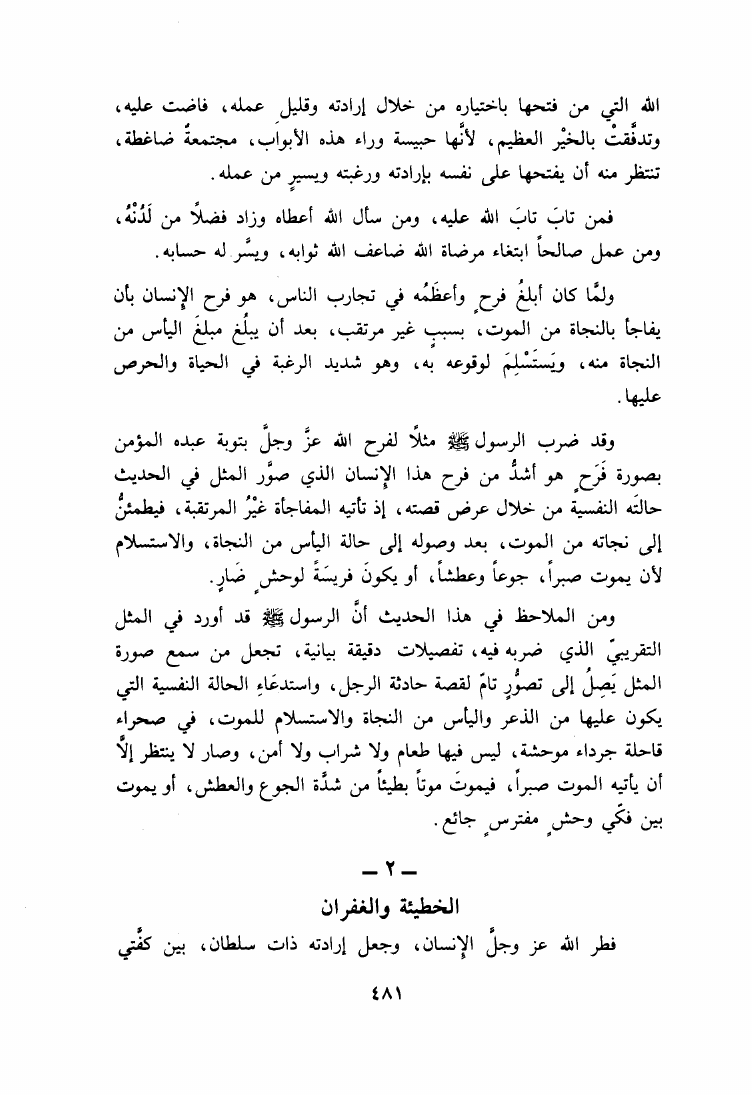 الله التي من فتحها باختياره من خلال إرادته وقليلِ عمله، فاضت عليه،
وتدفَّقتْ بالخيْر العظيم، لأنَّها حبيسة وراء هذه الأبواب، مجتمعةٌ ضاغطة،
تنتظر منه أن يفتحها على نفسه بإرادته ورغبته ويسيرٍ من عمله.
فمن تابَ تابَ الله عليه، ومن سأل الله أعطاه وزاد فضلًا من لَدُنْهُ،
ومن عمل صالحاً ابتغاء مرضاة الله ضاعف الله ثوابه، ويسَّر له حسابه.
ولمَّا كان أبلغُ فرحٍ وأعظَمُه في تجارب الناس، هو فرح الإنسان بأن
يفاجأ بالنجاة من الموت، بسببٍ غير مرتقب، بعد أن يبلُغ مبلغَ اليأس من
النجاة منه، ويَستَسْلِمَ لوقوعه به، وهو شديد الرغبة في الحياة والحرص
عليها.
وقد ضرب الرسول ﷺ مثلًا لفرح الله عزَّ وجلَّ بتوبة عبده المؤمن
بصورة فَرَحٍ هو أشدُّ من فرح هذا الإنسان الذي صوَّر المثل في الحديث
حالتَه النفسية من خلال عرض قصته، إذ تأتيه المفاجأة غيْرُ المرتقبة، فيطمئنُّ
إلى نجاته من الموت، بعد وصوله إلى حالة اليأس من النجاة، والاستسلام
لأن يموت صبراً، جوعاً وعطشاً، أو يكونَ فريسَةً لوحشٍ ضَارٍ.
ومن الملاحظ في هذا الحديث أنَّ الرسول ﷺ قد أورد في المثل
التقريبيّ الذي ضربه فيه، تفصيلات دقيقة بيانية، تجعل من سمع صورة
المثل يَصِلُ إلى تصوُّرٍ تامّ لقصة حادثة الرجل، واستدعَاءِ الحالة النفسية التي
يكون عليها من الذعر واليأس من النجاة والاستسلام للموت، في صحراء
قاحلة جرداء موحشة، ليس فيها طعام ولا شراب ولا أمن، وصار لا ينتظر إلَّا
أن يأتيه الموت صبراً، فيموتَ موتاً بطيئاً من شدَّة الجوع والعطش، أو يموت
بين فكّي وحشٍ مفترسٍ جائع.
– ٢ –
الخطيئة والغفران
فطر الله عز وجلَّ الإنسان، وجعل إرادته ذات سلطان، بين كفَّتي
٤٨١